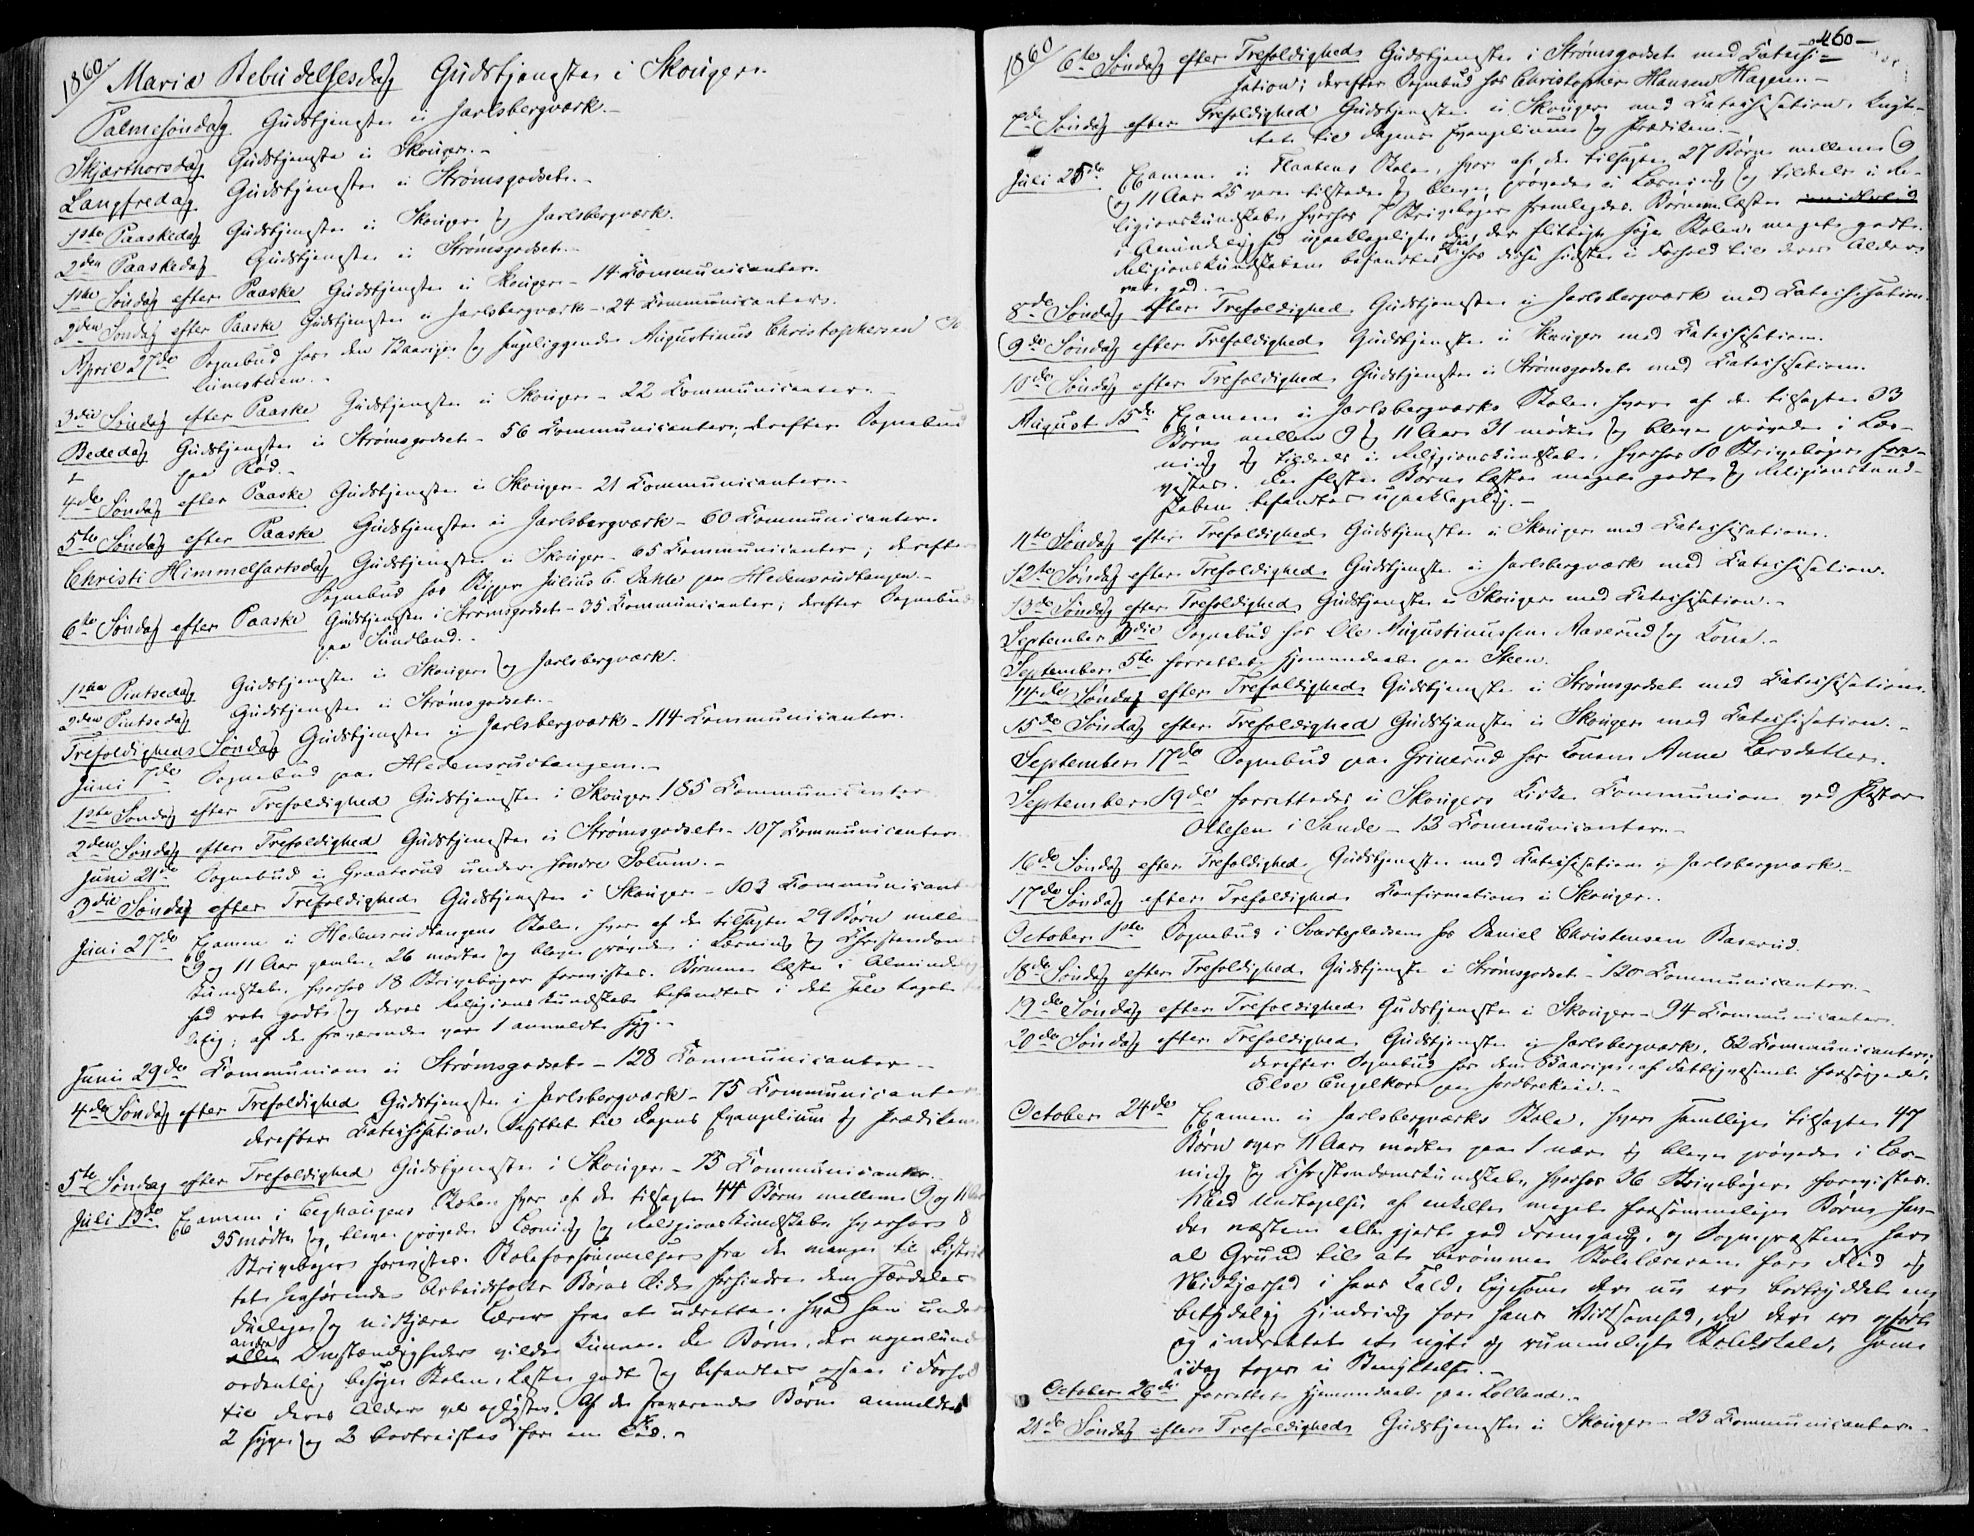 1860.
Mariæ Bebudelsesdag Gudstjeneste i Skouger.
Palmesøndag. Gudstjeneste i Jarlsbergværk.-
Skjærthorsdag Gudstjeneste i Skouger.-
Langfredag. Gudstjeneste i Strømsgodset.-
1ste Paaskedag Gudstjeneste i Skouger og Jarlsbergværk.
2den Paaskedag Gudstjeneste i Strømsgodset.-
1ste Søndag efter Paaske Gudstjeneste i Skouger - 14 Communicanter.
2den Søndag efter Paaske Gudstjeneste i Jarlsbergværk - 24 Communicanter.
April 27de Sognebud hos den aarige og sengeliggende Augustinus Christophersen
3die Søndag efter Paaske Gudstjeneste i Skouger - 22 Communicanter.
Bededag Gudstjeneste i Strømsgodset - 56 Communicanter; derefter Sognebud
paa Rød.-
4de Søndag efter Paaske Gudstjeneste i Skouger - 21 Communicanter.-
5te Søndag efter Paaske Gudstjeneste i Jarlsbergværk - 60 Communicanter.
Christi Himmelfartsdag Gudstjeneste i Skouger - 65 Communicanter; derefter
Sognebud hos Skipper Julius C. Dahle paa Hedensrudtangen.-
6te Søndag efter Paaske Gudstjeneste i Strømsgodset - 35 Communicanter; derefter Sognebud
paa Sundland.-
1ste Pintsedag Gudstjeneste i Skouger og Jarlsbergværk.
2den Pintsedag Gudstjeneste i Strømsgodset.-
Trefoldigheds Søndag Gudstjeneste i Jarlsbergværk - 114 Communicanter.
Juni 7de Sognebud paa Hedensrudtangen.-
1ste Søndag efter Trefoldighed Gudstjeneste i Skouger 185 Communicanter
2den Søndag efter Trefoldighed Gudstjeneste i Strømsgodset - 107 Communicanter
Juni 21de Sognebud i Graaterud under søndre Solum.-
3die Søndag efter Trefoldighed Gudstjeneste i Skouger - 103 Communicant
Juni 27de Examen i Hedensrudtangens Skole, hvor af de tilsagte 29 Børn mellem
9 og 11 Aar gamle, 26 mødte og bleve prøvede i Læsning og Christendoms
kundskab, hvorhos 18 Skrivebøger forevistes. Børnene læste i Almindelig
hed ret godt og deres Religionskundskab befandtes i det Hele taget
; af de fraværende var 1 anmeldt syg.-
Juni 29de Communion i Strømsgodset - 128 Communicanter -
4de Søndag efter Trefoldighed Gudstjeneste i Jarlsbergværk - 75 Communicanter
derefter Catechisation, knyttet til Dagens Evangelium og Prædiken
5te Søndag efter Trefoldighed Gudstjeneste i Skouger - 75 Communicanter.
Juli 13de Examen i Eeghaugens Skole, hvor af de tilsagte 44 Børn mellem 9 og 11 Aar
35 mødte og bleve prøvede i Læsning og Religionskundskab, hvorhos 8
Skrivebøger forevistes. Skoleforsømmelser fra de mange til Distrik
tet henhørende Arbeidsfolks Børns Side forhindrer den særdeles
duelige og nidkjære Lærer fra at udrette, hvad han under
andre Omstændigheder vilde kunne. De Børn, der nogenlunde
ordentlig besøge Skolen, læste godt og befandtes ogsaa i Forhold
til deres Alder vel oplyste. Af de fraværende Børn anmeldtes
2 syge og 2 bortreiste for en Tid.-
460-
1860
6te Søndag efter Trefoldighed Gudstjeneste i Strømsgodset med Catechi-
sation; derefter Sognebud hos Christopher Hansen Hagen.-
7de Søndag efter Trefoldighed Gudstjeneste i Skouger med Catechisation, knyt-
tet til Dagens Evangelium og Prædiken.-
Juli 25de Examen i Flaatens Skole, hvor af de tilsagte 27 Børn mellem 9
og 11 Aar 25 vare tilstede og bleve prøvede i Læsning og tildeels i Re-
ligionskundskab, hvorhos 7 Skrivebøger fremlagdes. Børnene læste
i Almindelighed upaaklageligt, de, der flittigt søge Skolen, meget godt.
Religionskundskaben befandtes hos disse sidste i Forhold til deres Alder
ret god.-
8de Søndag efter Trefoldighed Gudstjeneste i Jarlsbergværk med Catechisation
9de Søndag efter Trefoldighed Gudstjeneste i Skouger med Catechisation.
10de Søndag efter Trefoldighed Gudstjeneste i Strømsgodset med Catechisation.
August 15de Examen i Jarlsbergværks Skole, hvor af de tilsagte 33
Børn mellem 9 og 11 Aar 31 mødte og bleve prøvede i Læs-
ning og tildeels i Religionskundskab, hvorhos 10 Skrivebøger fore-
vistes. De fleste Børn læste meget godt og Religionskund-
skaben befandtes upaaklagelig.-
11te Søndag efter Trefoldighed Gudstjeneste i Skouger med Catechisation.
12te Søndag efter Trefoldighed Gudstjeneste i Jarlsbergværk med Catechisation.
13de Søndag efter Trefoldighed Gudstjeneste i Skouger med Catechisation.-
September 3die Sognebud hos Ole Augustinussen Aaserud og Kone.-
September 5te forrettet Hjemmedaab paa Steen.
14de Søndag efter Trefoldighed Gudstjeneste i Strømsgodset med Catechisation.
15de Søndag efter Trefoldighed Gudstjeneste i Skouger med Catechisation.-
September 17de Sognebud paa Grinerud hos Konen Anne Larsdatter.
September 19de forrettedes i Skougers Kirke Communion ved Pastor
Ottesen i Sande - 13 Communicanter.-
16de Søndag efter Trefoldighed Gudstjeneste med Catechisation i Jarlsbergværk.-
17de Søndag efter Trefoldighed Confirmation i Skouger.
October 1ste Sognebud i Svartepladsen hos Daniel Christensen Baserud.
18de Søndag efter Trefoldighed Gudstjeneste i Strømsgodset - 120 Communicanter.-
19de Søndag efter Trefoldighed Gudstjeneste i Skouger - 94 Communicanter.
20de Søndag efter Trefoldighed Gudstjeneste i Jarlsbergværk. 82 Communicanter;
derefter Sognebud hos den aarige, af Fattigvæsenet forsørgede,
Else Engelkor paa Jordbrekeie.-
October 24de Examen i Jarlsbergværks Skole, hvor samtlige tilsagte 47
Børn over 11 Aar mødte paa 1 nær og bleve prøvede i Læs-
ning og Christendomskundskab, hvorhos 36 Skrivebøger forevistes.
Med Undtagelse af enkelte meget forsømmelige Børn hav-
de næsten alle gjort god Fremgang, og Sognepræsten har
al Grund til at berømme Skolelæreren for Flid og
Nidkjærhed i hans Kald, ligesom der nu er bortryddet en
betydelig Hindring for hans Virksomhed, da der er opført
og indrettet et nyt og rummeligt Skolelokale, som
idag toges i Benyttelse.-
October 26de forrettet Hjemmedaab paa Lolland.-
21de Søndag efter Trefoldighed Gudstjeneste i Skouger - 23 Communicanter.-